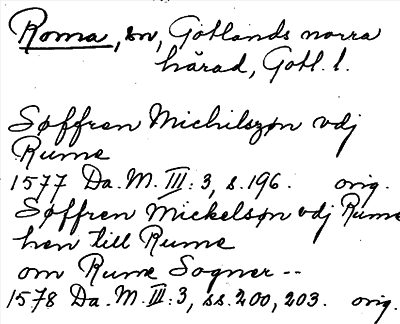 Roma, sn, Gotlands norra
härad, Gotl. l.
Søffren Michilszøn vdj
Rume
1577 Da. M. III: 3, s. 196. orig.
Søffren Mickelsøn vdj Rume
hen till Rume
om Rume Sogner --
1578 Da. M. III: 3, ss. 200, 203. orig.